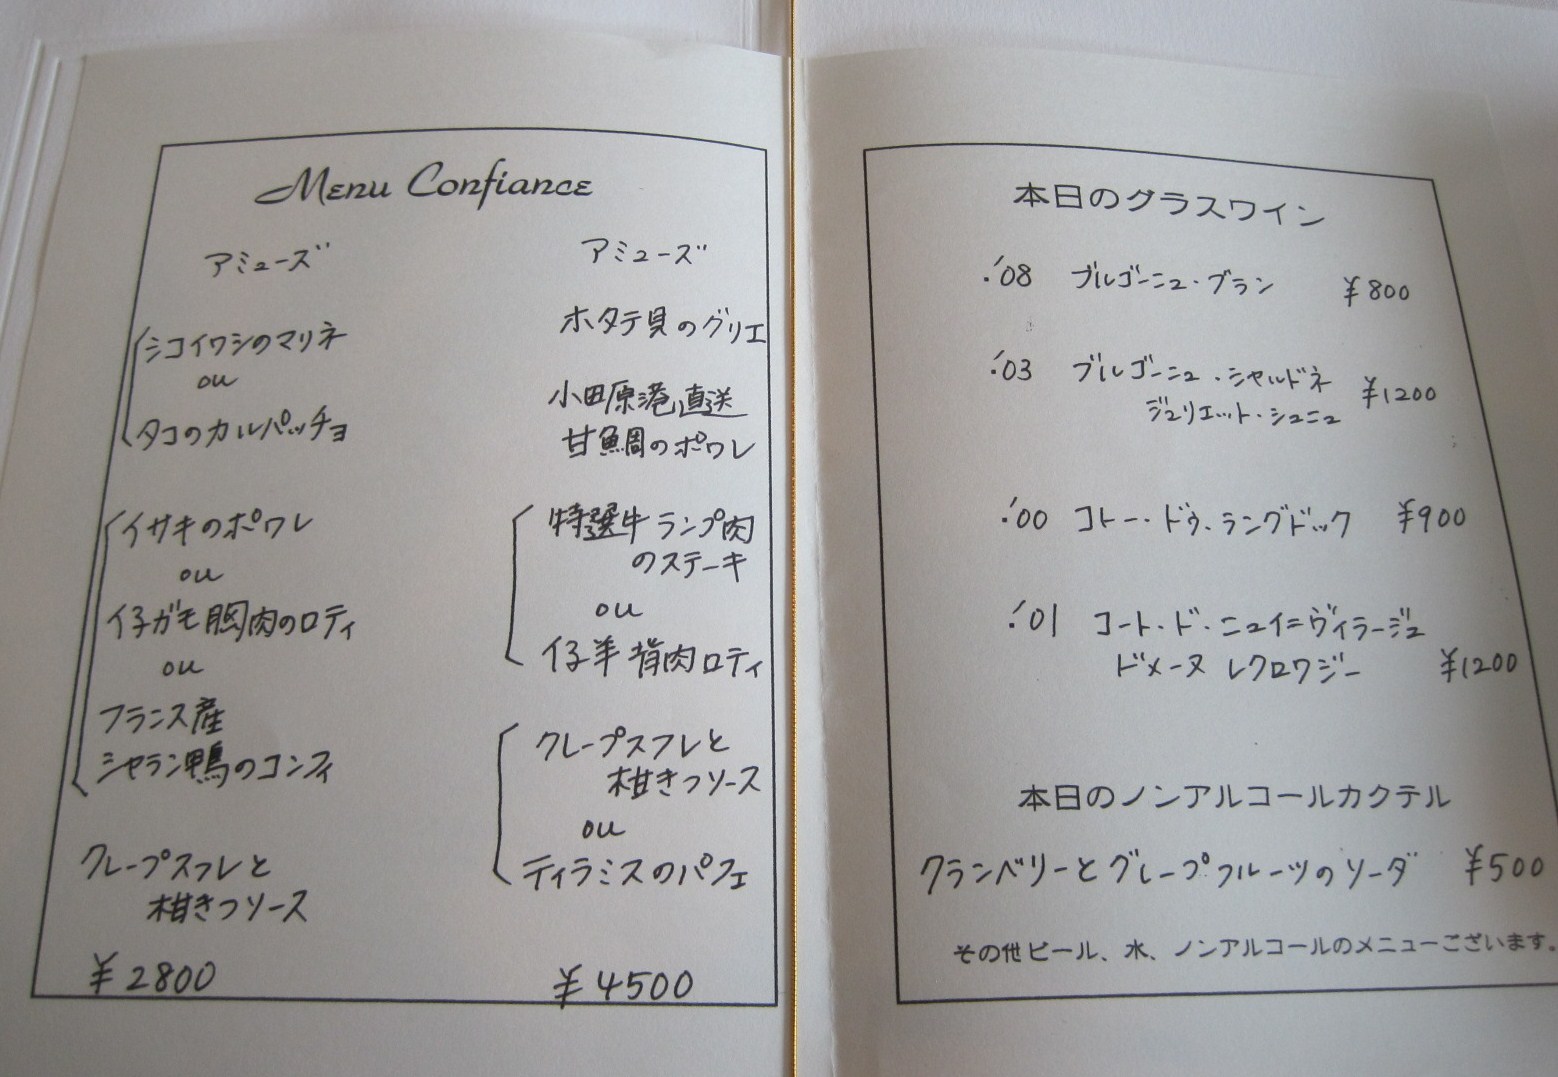 Menu Confiance
アミューズ
シコイワシのマリネ
ou
タコのカルパッチョ
イサキのポワレ
ou
仔ガモ胸肉のロティ
ou
フランス産
シャラン鴨のコンフィ
クレープスフレと
柑きつソース
¥2800
アミューズ
ホタテ貝のグリエ
小田原港直送
甘鯛のポワレ
特選牛ランプ肉
のステーキ
ou
仔羊背肉ロティ
クレープスフレと
柑きつソース
ou
ティラミスのパフェ
¥4500
本日のグラスワイン
'08 ブルゴーニュ・ブラン ¥800
'03 ブルゴーニュ・シャルドネ ¥1200
ジュリエット・シュニュ
'00 コトー・ドゥ・ラングドック ¥900
'01 コート・ド・ニュイ=ヴィラージュ
ドメーヌ レクロワジー ¥1200
本日のノンアルコールカクテル
クランベリーとグレープフルーツのソーダ ¥500
その他ビール、水、ノンアルコールのメニューございます。